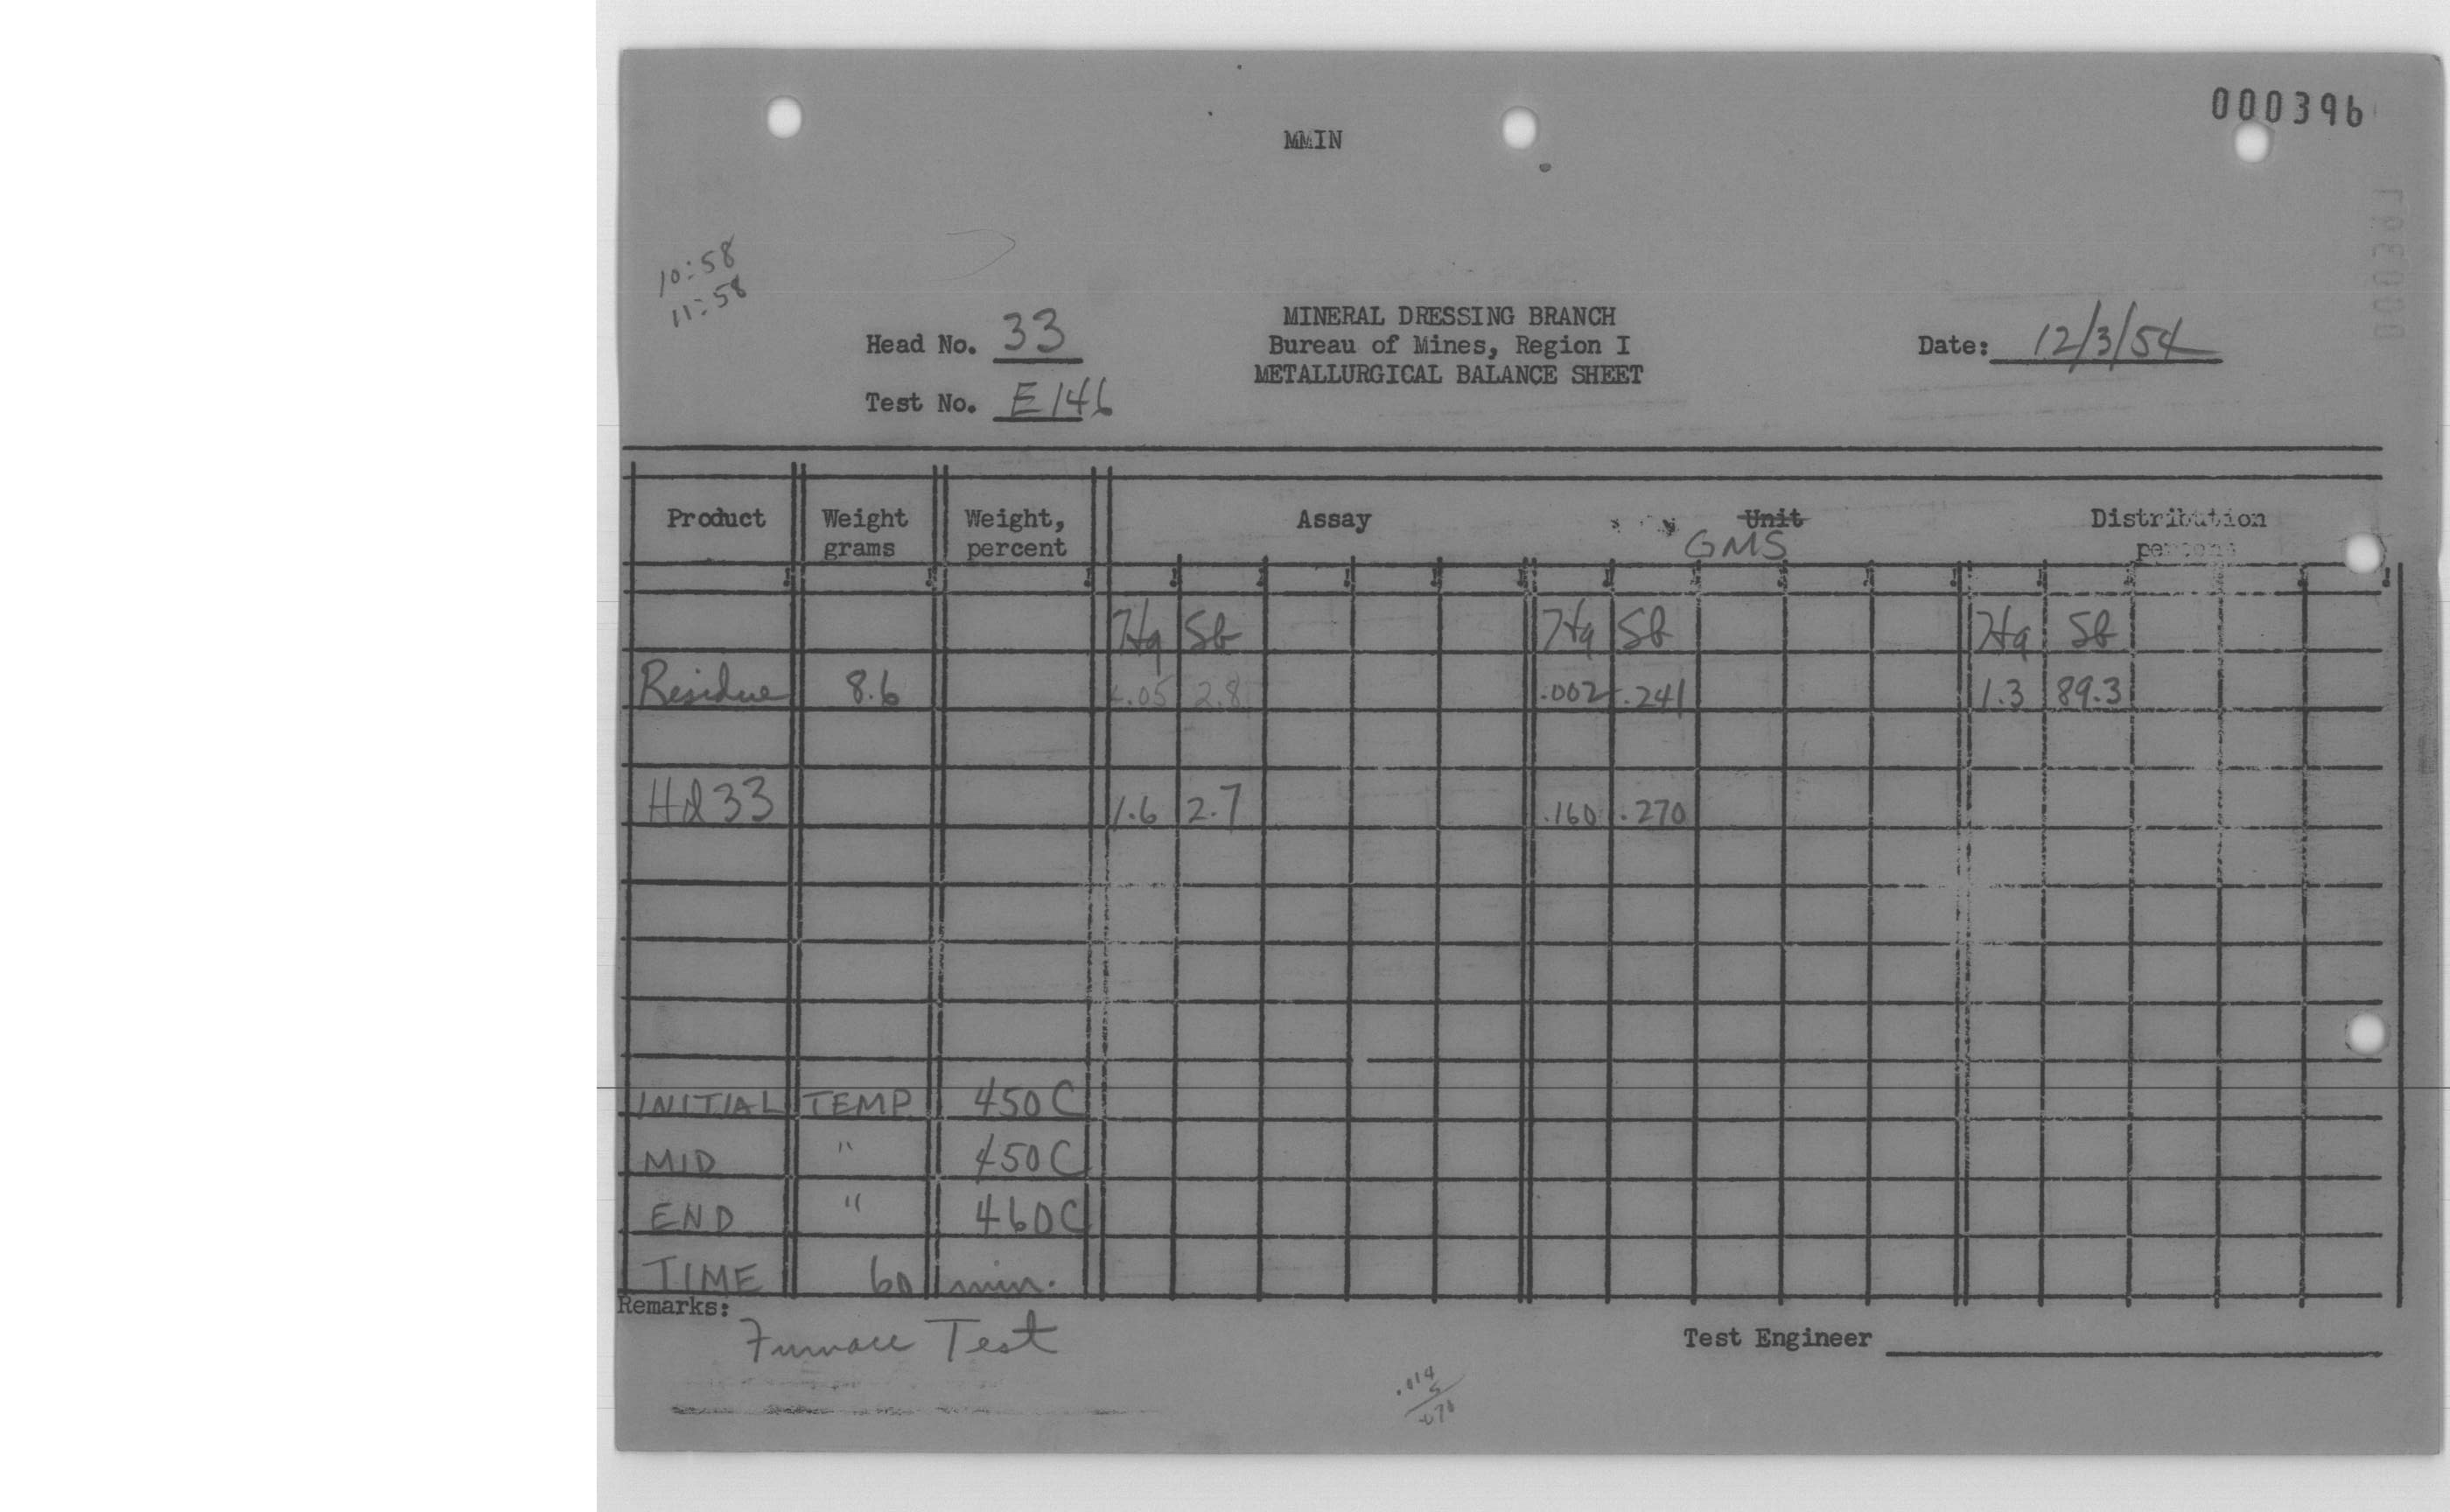 000396
MMIN
10:58
11:58
Head No. 33
Test No. E146
MINERAL DRESSING BRANCH
Bureau of Mines, Region I
METALLURGICAL BALANCE SHEET
Date: 12/3/54
Product Weight grams Weight, percent Assay Unit GMS Distribution percent
Hg Sb Hg Sb Hg Sb
Residue 8.6 <.05 2.8 .002 .241 1.3 89.3
Hd 33 1.6 2.7 .160 .270
INITIAL TEMP 450C
MID " 450C
END " 460C
TIME 60 min.
Remarks:
Furnace Test
Test Engineer
.014
5
.070